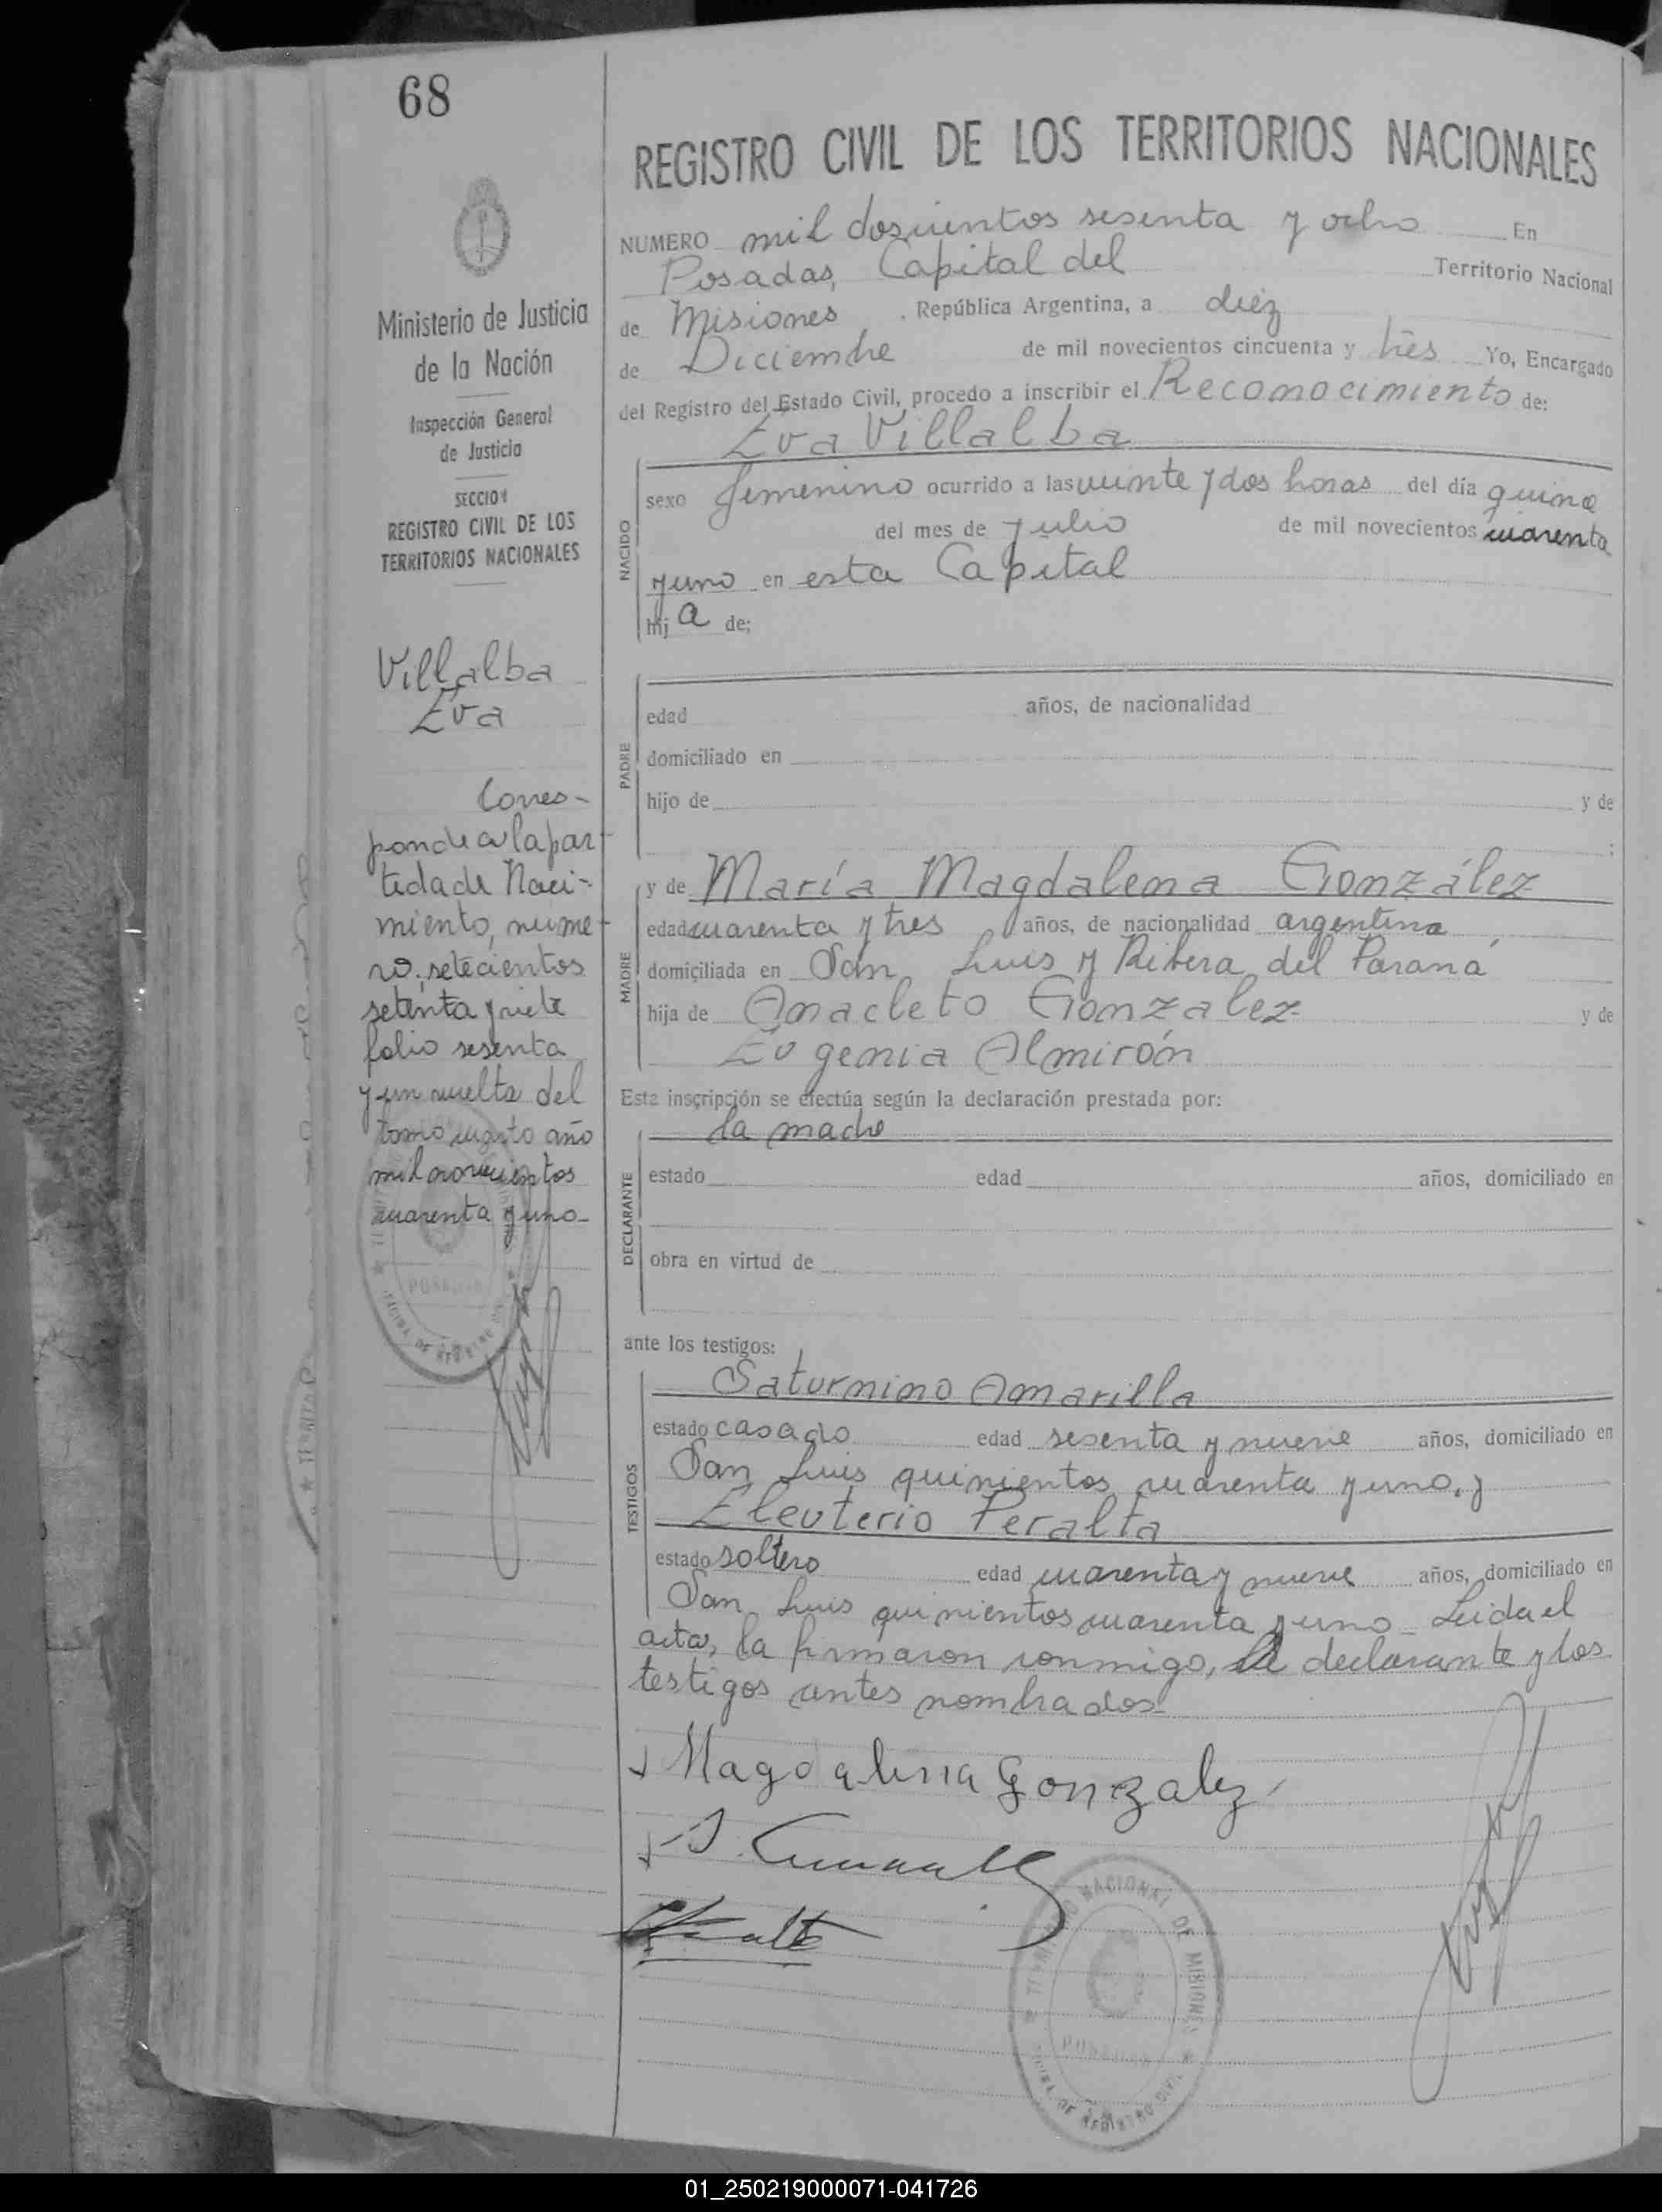 68
Ministerio de Justicia
de la Nación
Inspección General
de Justicia
SECCION
REGISTRO CIVIL DE LOS
TERRITORIOS NACIONALES
Villalba
Eva
Corres-
ponde a la par-
tida de Naci-
miento, nume-
ro, setecientos
setenta y siete
folio sesenta
y un vuelta del
tomo cuarto año
mil novecientos
cuarenta y uno-
REGISTRO CIVIL DE LOS TERRITORIOS NACIONALES
NUMERO mil doscientos sesenta y ocho En
Posadas, Capital del Territorio Nacional
de Misiones, República Argentina, a diez
de Diciembre de mil novecientos cincuenta y tres Yo, Encargado
del Registro del Estado Civil, procedo a inscribir el Reconocimiento de:
Eva Villalba
NACIDO
sexo femenino ocurrido a las veinte y dos horas del día quince
del mes de Julio de mil novecientos cuarenta
y uno en esta Capital
hij a de;
PADRE
edad años, de nacionalidad
domiciliado en
hijo de y de
MADRE
y de María Magdalena González
edad cuarenta y tres años, de nacionalidad argentina,
domiciliada en San Luis y Ribera del Paraná
hija de Anacleto Gonzalez y de
Eugenia Almirón
Esta inscripción se efectúa según la declaración prestada por:
la madre
DECLARANTE
estado edad años, domiciliado en
obra en virtud de
ante los testigos:
TESTIGOS
Saturnino Amarilla
estado casado edad sesenta y nueve años, domiciliado en
San Luis quinientos cuarenta y uno, y
Eleuterio Peralta
estado soltero edad cuarenta y nueve años, domiciliado en
San Luis quinientos cuarenta y uno - Leida el
acta, la firmaron conmigo, la declarante y los
testigos antes nombrados-
Magdalena Gonzalez
TERRITORIO NACIONAL DE MISIONES
POSADAS
OFICINA DE REGISTRO CIVIL
01_250219000071-041726